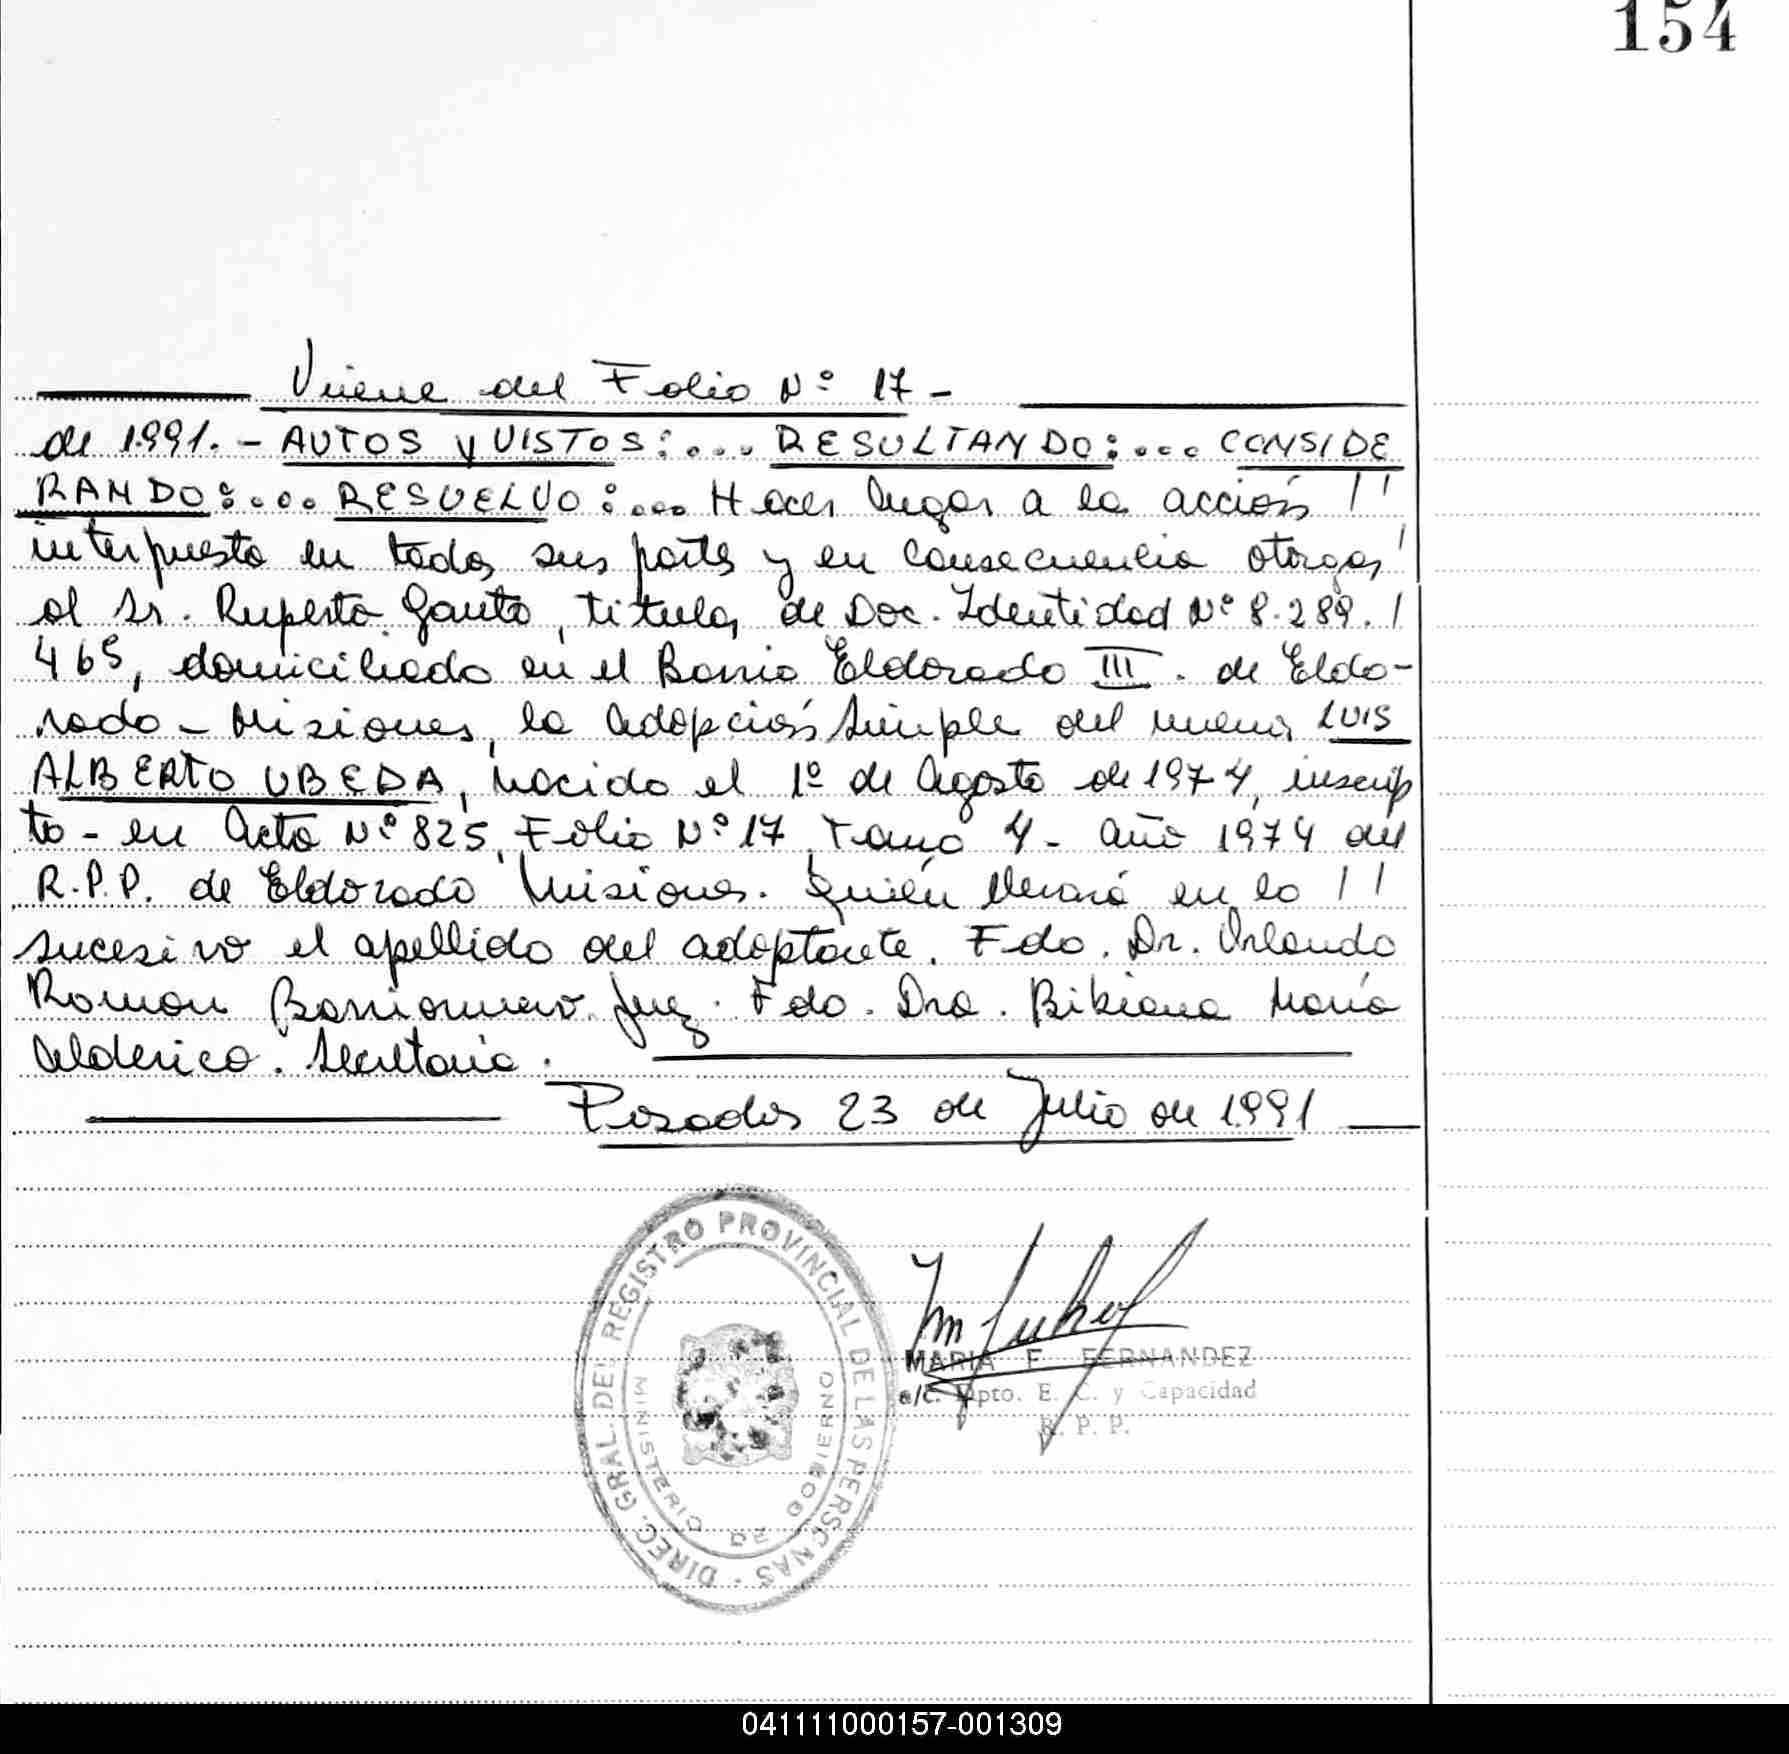 154
Viene del Folio Nº 17 -
de 1991. - AUTOS y VISTOS:... RESULTANDO:... CONSIDE
RANDO:... RESUELVO:... Hacer lugar a la acción //
interpuesta en todas sus partes y en consecuencia otorgar /
al Sr. Ruperto Gauto, titular de Doc. Identidad Nº 8.289. /
465, domiciliado en el Barrio Eldorado III. de Eldo-
rado - Misiones, la adopción simple del menor LUIS
ALBERTO UBEDA, nacido el 1º de Agosto de 1974, inscrip
to - en Acta Nº 825, Folio Nº 17, Tomo 4 - año 1974 del
R.P.P. de Eldorado Misiones. Quién llevará en lo //
sucesivo el apellido del adoptante. Fdo. Dr. Orlando
Ramon Barrionuevo. Juez. Fdo. Dra. Bibiana María
Alderico. Secretaria.
Posadas 23 de Julio de 1991
DIREC. GRAL. DEL REGISTRO PROVINCIAL DE LAS PERSONAS
MINISTERIO DE GOBIERNO
MARIA F. FERNANDEZ
a/c. Dpto. E. C. y Capacidad
R. P. P.
041111000157-001309